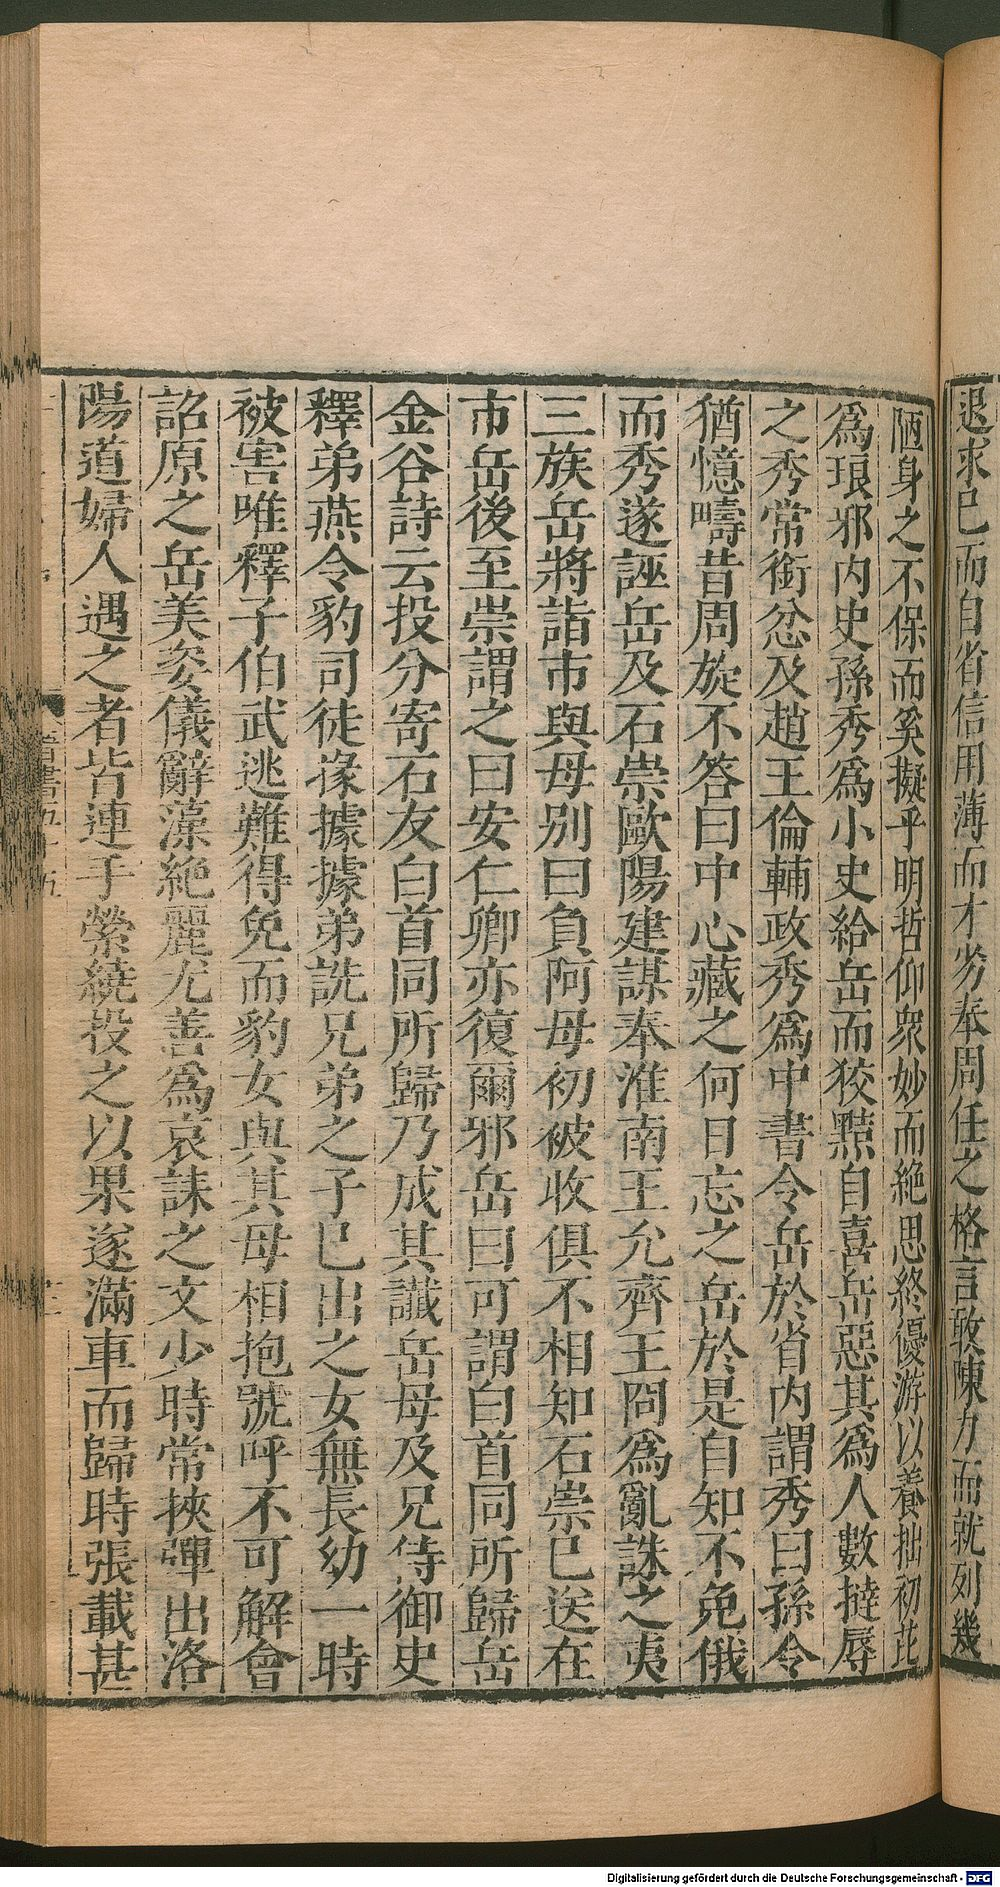 退求己而自省信用薄而才劣奉周任之格言敢陳力而就列幾
陋身之不保而奚擬乎明哲仰衆妙而絶思終優游以養拙初芘
爲琅邪内史孫秀爲小史給岳而狡黠自喜岳惡其爲人數撻辱
之秀常銜忿及趙王倫輔政秀爲中書令岳於省内謂秀曰孫令
猶憶疇昔周旋不答曰中心藏之何日忘之岳於是自知不免俄
而秀遂誣岳及石崇歐陽建謀奉淮南王允齊王冏爲亂誅之夷
三族岳將詣市與母别曰負阿母初被收俱不相知石崇已送在
市岳後至崇謂之曰安仁卿亦復爾邪岳曰可謂白首同所歸岳
金谷詩云投分寄石友白首同所歸乃成其讖岳母及兄侍御史
釋弟燕令豹司徒掾據據弟詵兄弟之子已出之女無長幼一時
被害唯釋子伯武逃難得免而豹女與其母相抱號呼不可解會
詔原之岳美姿儀辭藻絶麗尤善爲哀誄之文少時常挾彈出洛
陽道婦人遇之者皆連手縈繞投之以果遂滿車而歸時張載甚
晉書五十五
Digitalisierung gefördert durch die Deutsche Forschungsgemeinschaft - DFG